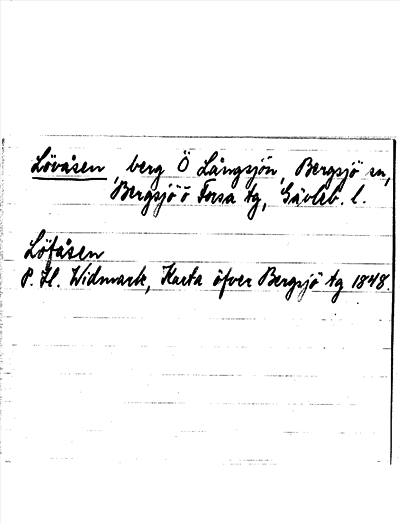 Lövåsen, berg Ö Långsjön, Bergsjö sn,
Bergsjö o Forsa tg, Gävleb. l.
Löfåsen
P. H. Widmark, Karta öfver Bergsjö tg 1848.